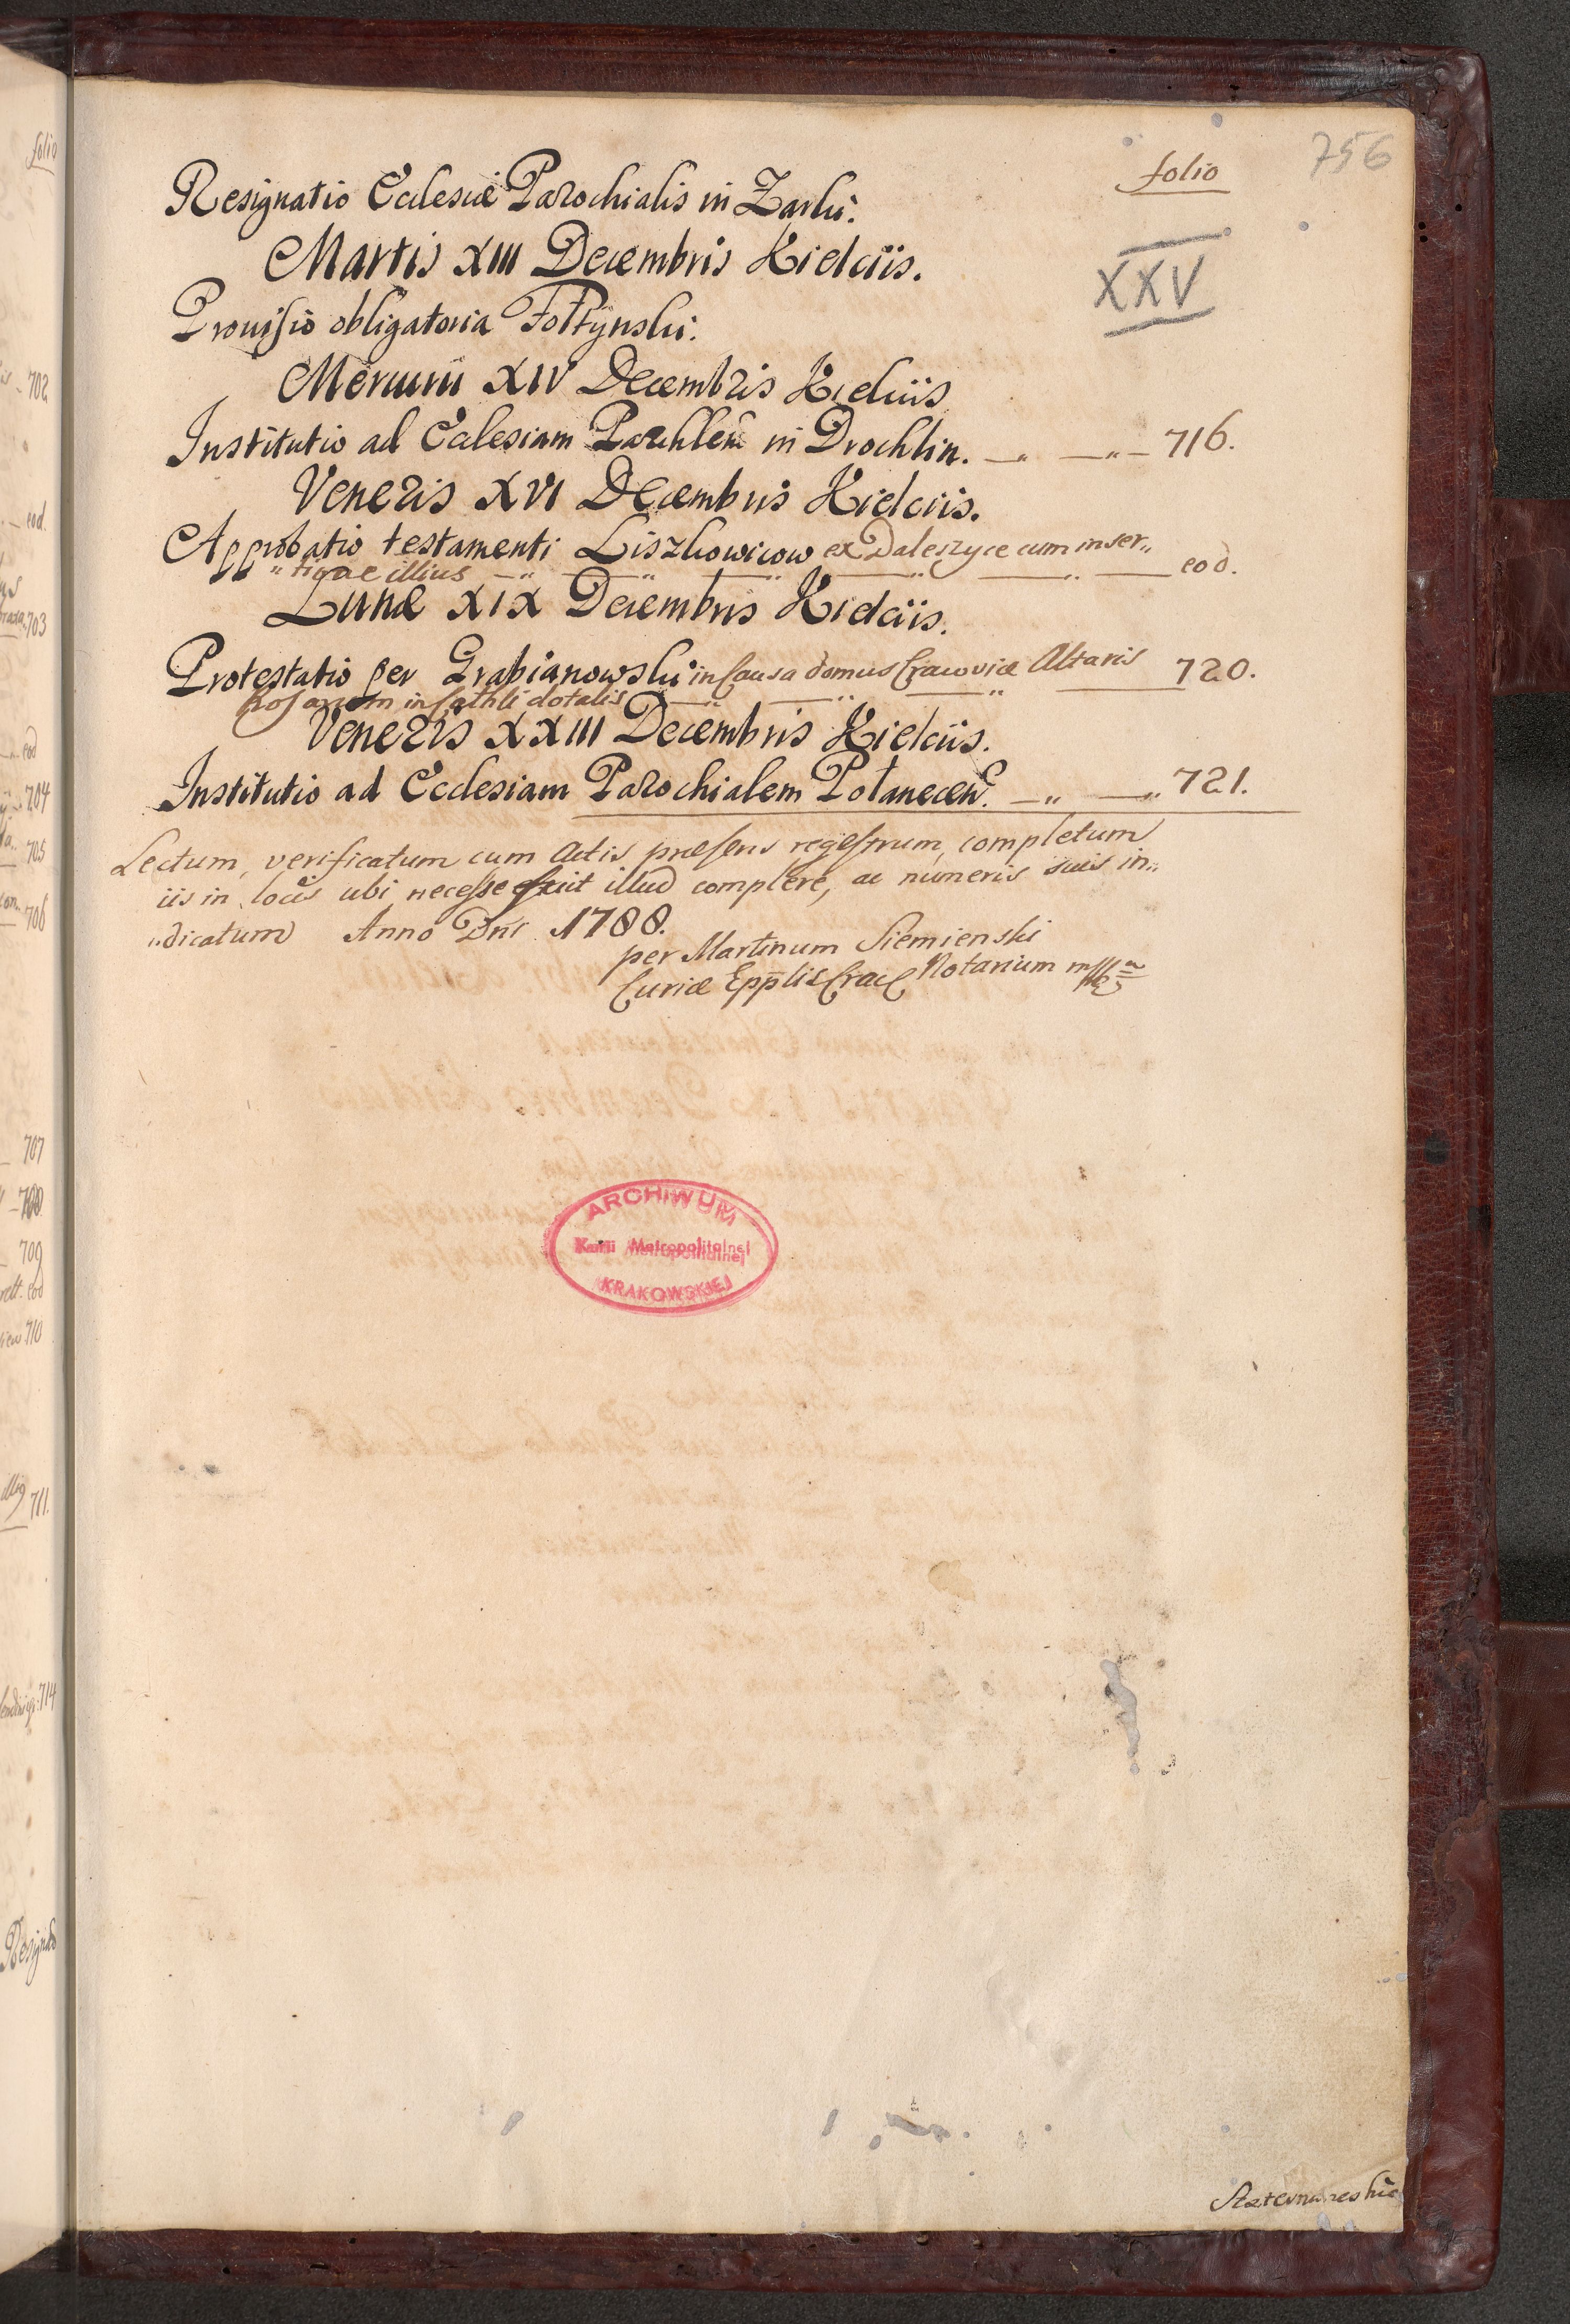 folio
756
Resignatio Ecclesiæ Parochialis in Zarki.
XXV
Martis XIII Decembris Kielciis.
Provisio obligatoria Foltynski.
Mercurii XIV Decembris Kielciis
Institutio ad Ecclesiam Parchlem in Drochlin. 716.
Veneris XVI Decembris Kielciis.
Approbatio testamenti Liszkowicow ex Daleszyce cum inser„
„tione illius eod.
Lunæ XIX Decembris Kielciis.
Protestatio per Grabianowski in Causa domus Cracoviæ Altaris 720.
Rosarum in dotalis
Veneris XXIII Decembris Kielciis.
Institutio ad Ecclesiam Parochialem Polanecen. 721.
Lectum, verificatum cum Actis præsens regestrum, completum
iis in locis ubi necesse fuit illud complere, ac numeris suis in„
„dicatum Anno Dni 1788.
per Martinum Siemienski
Curiæ Epplis Crac Notarium
ARCHIWUM
Kurii Metropolitalnej
KRAKOWSKIEJ
folio
702
eod.
703
eod
704
705
706
707
709
eod
710
711.
714